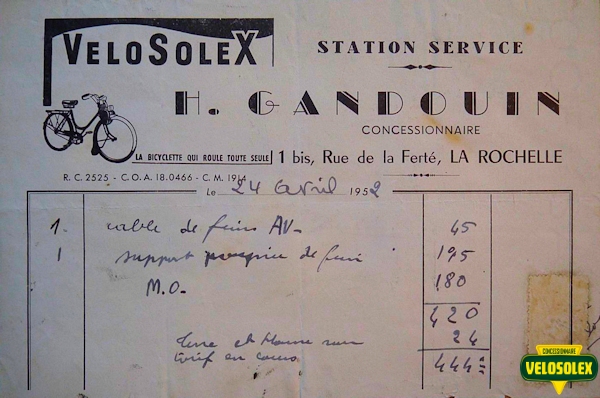 VELOSOLEX
STATION SERVICE
H. GANDOUIN
CONCESSIONNAIRE
LA BICYCLETTE QUI ROULE TOUTE SEULE
1 bis, Rue de la Ferté, LA ROCHELLE
R. C. 2525 - C.O.A. 18.0466 - C. M. 1914
Le 24 avril 1952
1. cable de frein AV- 45
1 support poignée de frein 195
M.O- 180
420
24
tarif en cours 444=
CONCESSIONNAIRE
VELOSOLEX